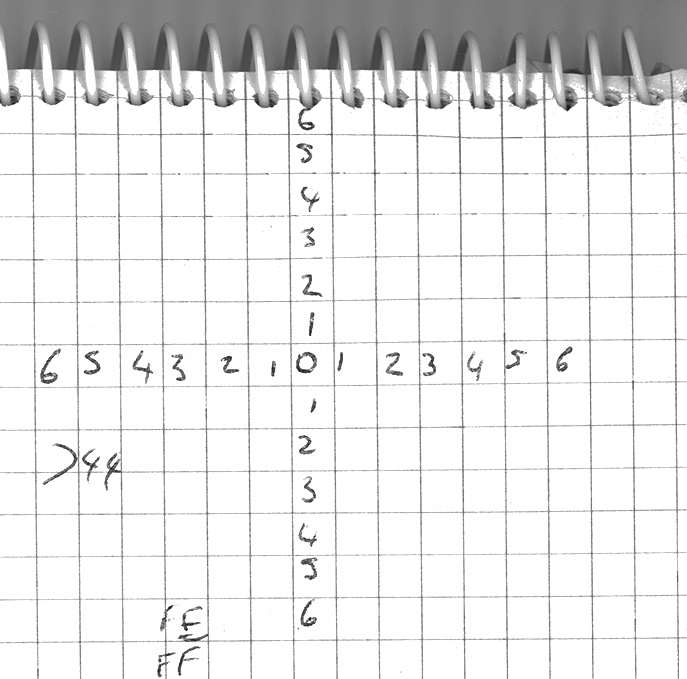 6
5
4
3
2
1
6 5 4 3 2 1 0 1 2 3 4 5 6
1
2
>44
3
4
5
6
FF
FF